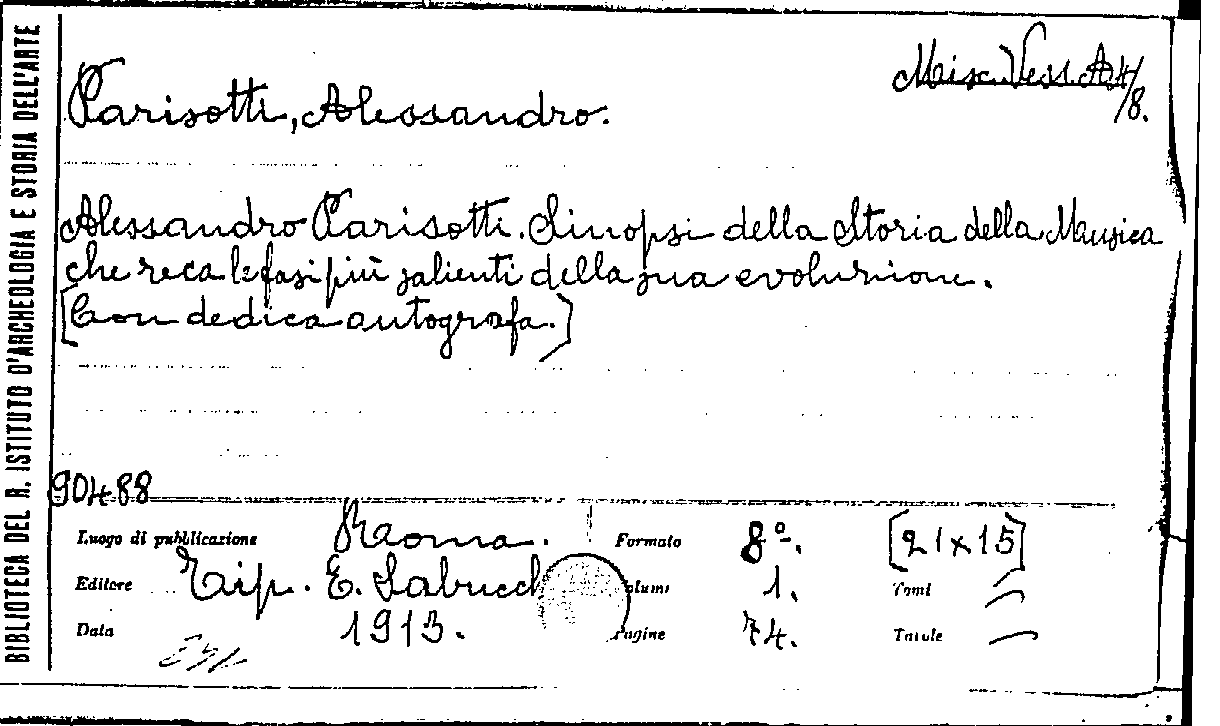 BIBLIOTECA DEL R. ISTITUTO D'ARCHEOLOGIA E STORIA DELL'ARTE
Misc. Vess. A4/8.
Parisotti, Alessandro.
Alessandro Parisotti. Sinopsi della Storia della Musica
che reca le fasi più salienti della sua evoluzione.
[Con dedica autografa.]
90488
Luogo di pubblicazione Roma. Formato 8º. [21x15]
Editore Tip. E. Sabucch Volumi 1. Tomi —
Data 1913. Pagine 74. Tavole —